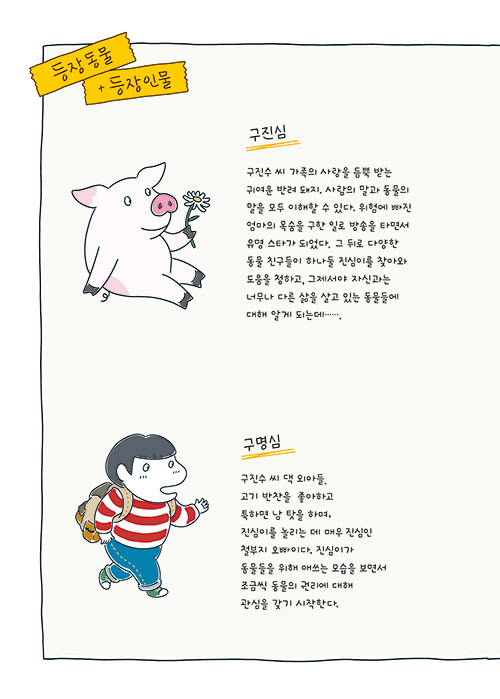 등장동물
+ 등장인물
구진심
구진수 씨 가족의 사랑을 듬뿍 받는
귀여운 반려 돼지. 사람의 말과 동물의
말을 모두 이해할 수 있다. 위험에 빠진
엄마의 목숨을 구한 일로 방송을 타면서
유명 스타가 되었다. 그 뒤로 다양한
동물 친구들이 하나둘 진심이를 찾아와
도움을 청하고, 그제서야 자신과는
너무나 다른 삶을 살고 있는 동물들에
대해 알게 되는데…….
구명심
구진수 씨 댁 외아들.
고기 반찬을 좋아하고
툭하면 남 탓을 하며,
진심이를 놀리는 데 매우 진심인
철부지 오빠이다. 진심이가
동물들을 위해 애쓰는 모습을 보면서
조금씩 동물의 권리에 대해
관심을 갖기 시작한다.